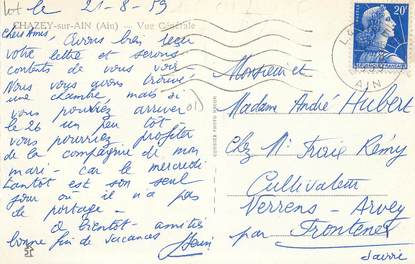 le 21-8-59
CHAZEY-sur-AIN (Ain) — Vue Générale
Chers Amis, Avons bien reçu
votre lettre et serons
contents de vous voir
Nous vous avons trouvé
une chambre, mais si
vous pouviez arriver
le 26 un peu tôt -
vous pourriez profiter
de la compagnie de mon
mari - car le mercredi
est son seul
jour ou il n'a pas
de portage -
à Bientôt - amitiés
bonne fin de vacances
Monsieur et
Madame André Hubert
Chez Mr Troie Rémy
Cultivateur
Verrens - Arvey
par Frontenex
Savoie
20F
AIN